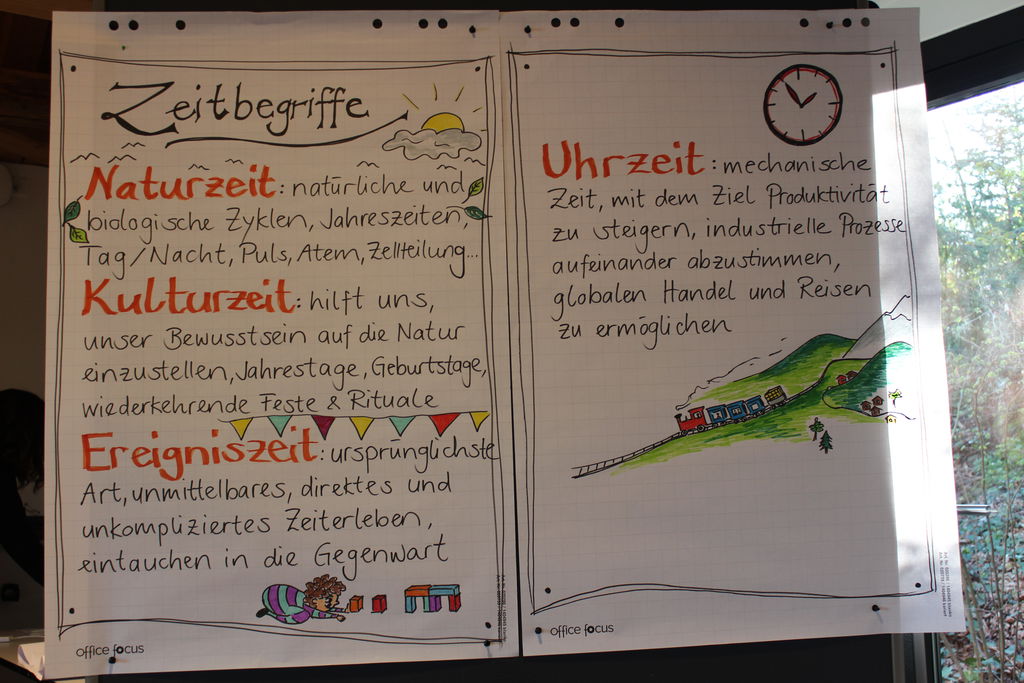 Zeitbegriffe
Naturzeit: natürliche und
biologische Zyklen, Jahreszeiten,
Tag/Nacht, Puls, Atem, Zellteilung...
Kulturzeit: hilft uns,
unser Bewusstsein auf die Natur
einzustellen, Jahrestage, Geburtstage,
wiederkehrende Feste & Rituale
Ereigniszeit: ursprünglichste
Art, unmittelbares, direktes und
unkompliziertes Zeiterleben,
eintauchen in die Gegenwart
office focus
Uhrzeit: mechanische
Zeit, mit dem Ziel Produktivität
zu steigern, industrielle Prozesse
aufeinander abzustimmen,
globalen Handel und Reisen
zu ermöglichen
office focus